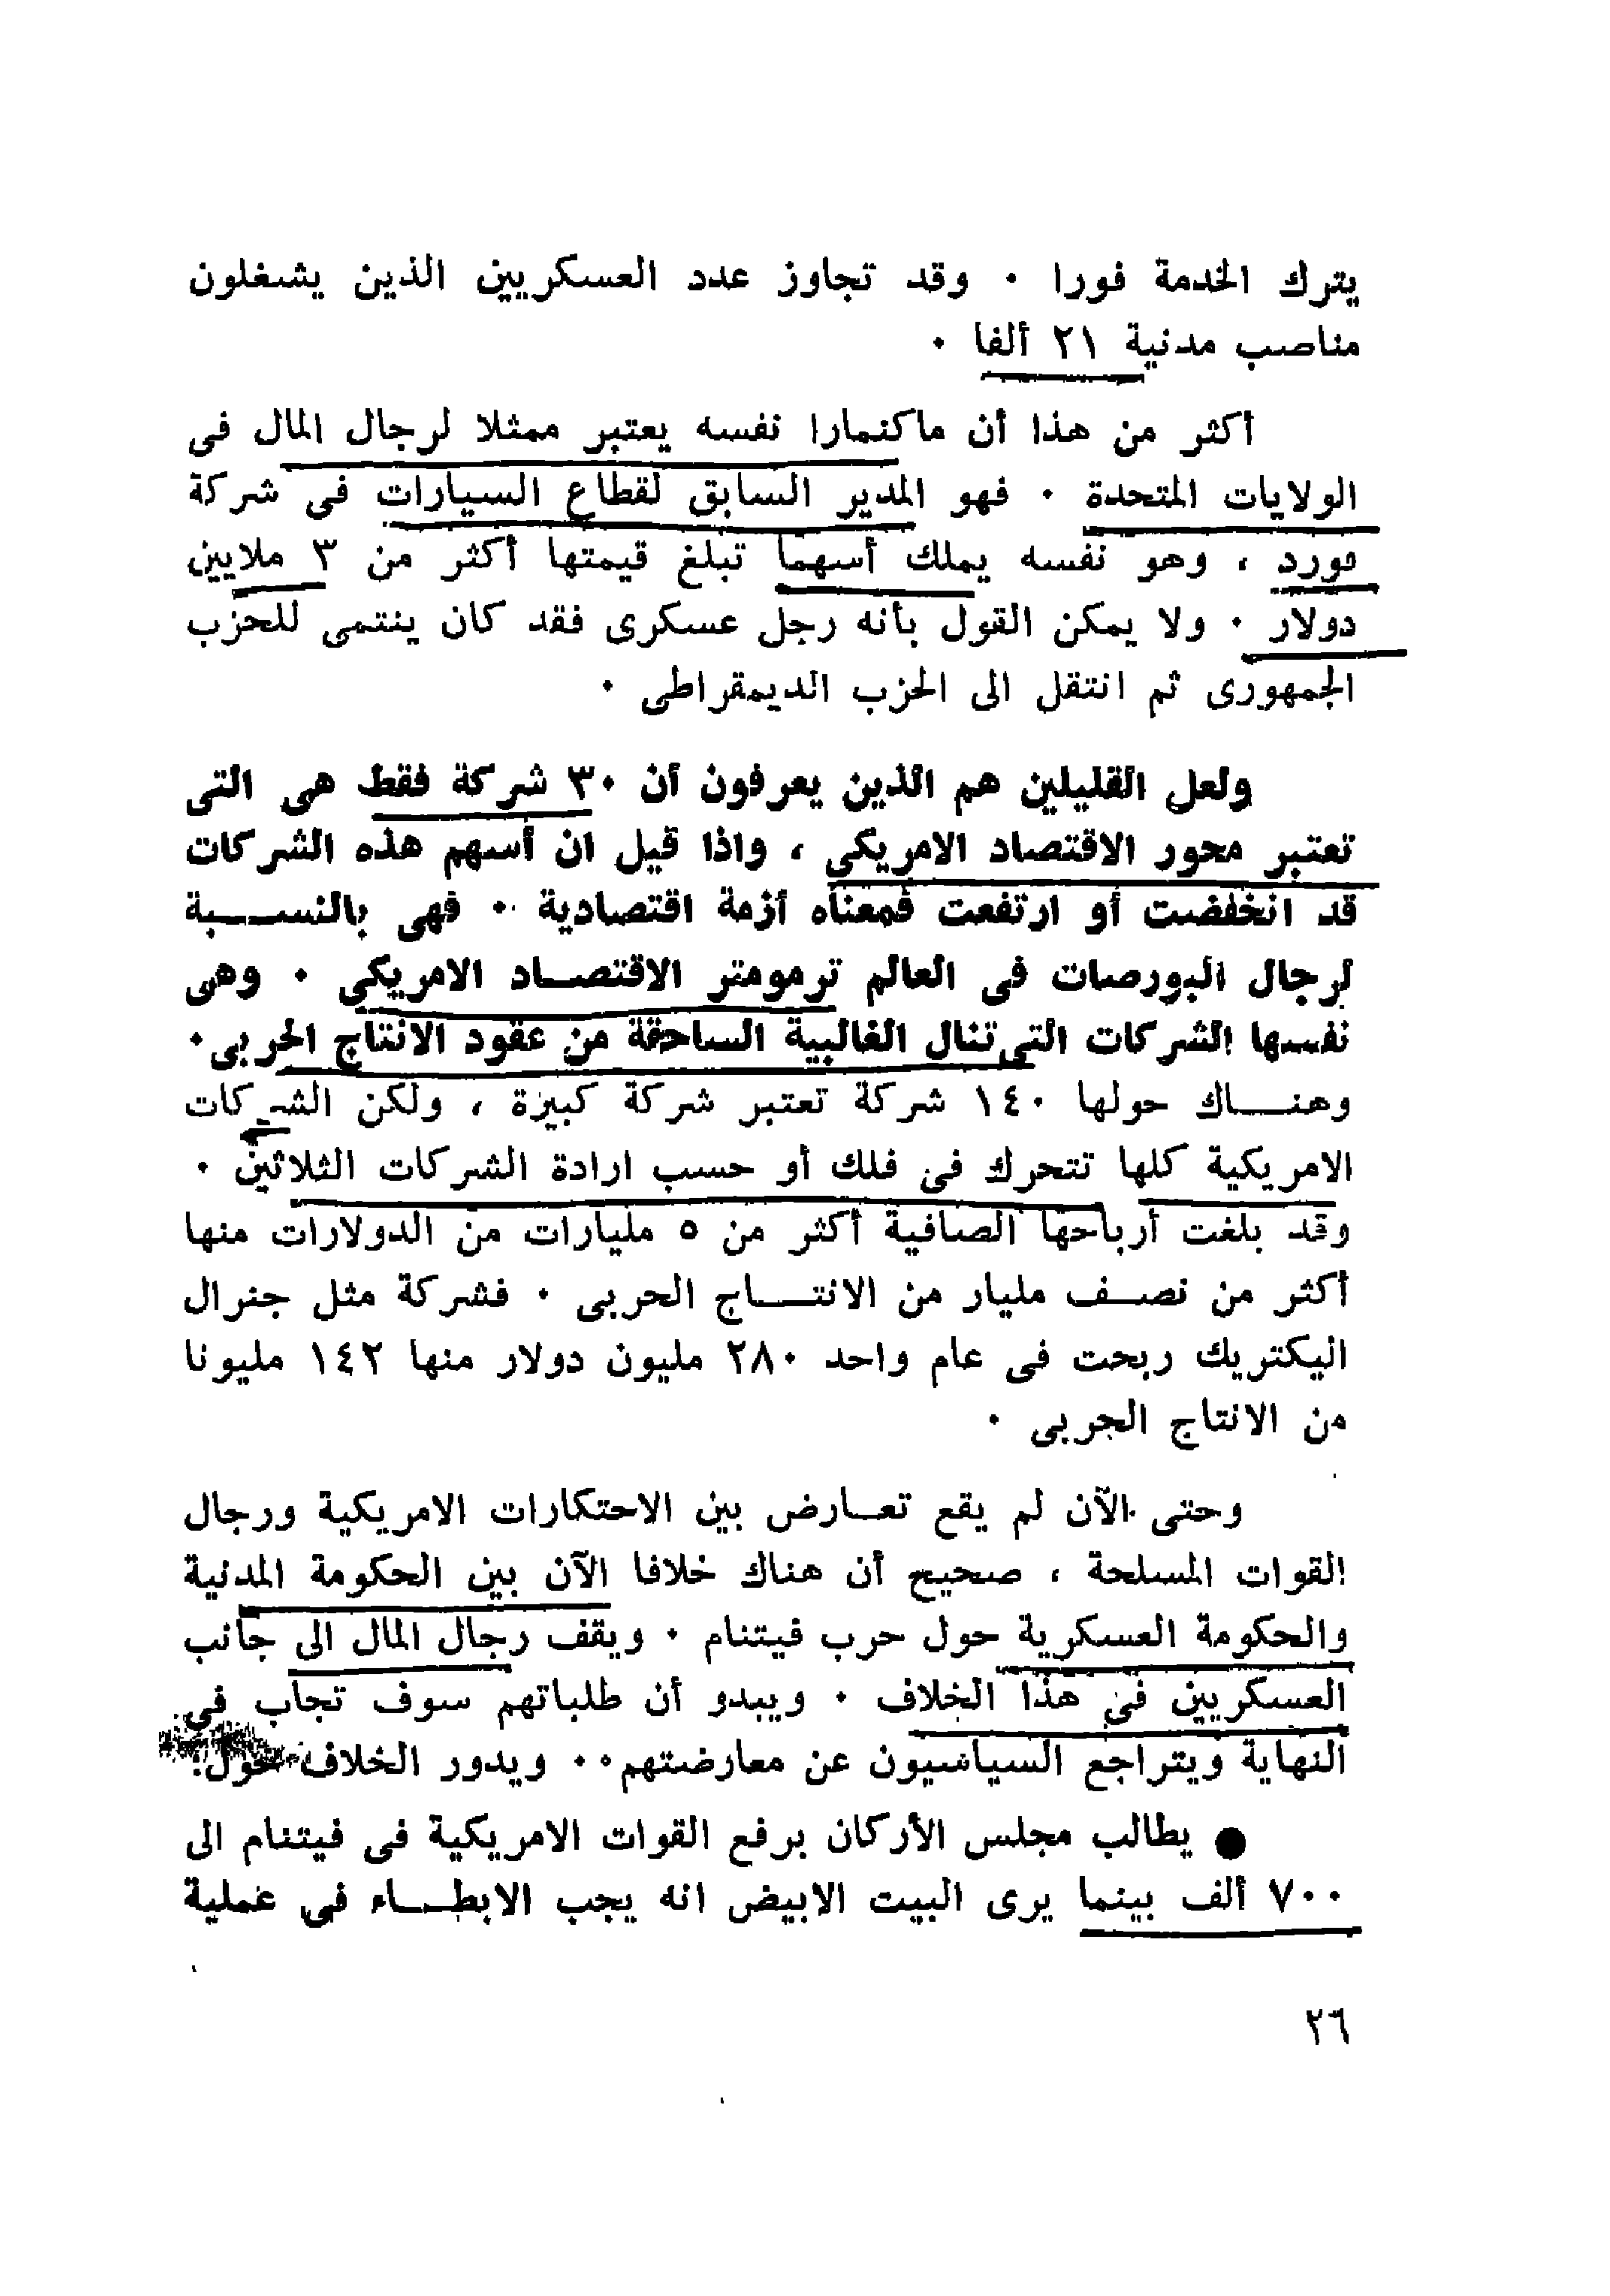 يترك الخدمة فورا ٠ وقد تجاوز عدد العسكريين الذين يشغلون
مناصب مدنية ٢١ ألفا ٠
أكثر من هذا أن ماكنمارا نفسه يعتبر ممثلا لرجال المال فى
الولايات المتحدة ٠ فهو المدير السابق لقطاع السيارات فى شركة
فورد ، وهو نفسه يملك أسهما تبلغ قيمتها أكثر من ٣ ملايين
دولار ٠ ولا يمكن القول بأنه رجل عسكرى فقد كان ينتمى للحزب
الجمهورى ثم انتقل الى الحزب الديمقراطى ٠
ولعل القليلين هم الذين يعرفون أن ٣٠ شركة فقط هى التى
تعتبر محور الاقتصاد الامريكى ، واذا قيل ان أسهم هذه الشركات
قد انخفضت أو ارتفعت فمعناه أزمة اقتصادية ٠٠ فهى بالنســـبة
لرجال البورصات فى العالم ترمومتر الاقتصــاد الامريكى ٠ وهى
نفسها الشركات التى تنال الغالبية الساحقة من عقود الانتاج الحربى٠
وهنـــاك حولها ١٤٠ شركة تعتبر شركة كبيرة ، ولكن الشركات
الامريكية كلها تتحرك فى فلك أو حسب ارادة الشركات الثلاثين ٠
وقد بلغت أرباحها الصافية أكثر من ٥ مليارات من الدولارات منها
أكثر من نصــف مليار من الانتـــاج الحربى ٠ فشركة مثل جنرال
اليكتريك ربحت فى عام واحد ٢٨٠ مليون دولار منها ١٤٢ مليونا
من الانتاج الحربى ٠
وحتى الآن لم يقع تعــارض بين الاحتكارات الامريكية ورجال
القوات المسلحة ، صحيح أن هناك خلافا الآن بين الحكومة المدنية
والحكومة العسكرية حول حرب فيتنام ٠ ويقف رجال المال الى جانب
العسكريين فى هذا الخلاف ٠ ويبدو أن طلباتهم سوف تجاب فى
النهاية ويتراجع السياسيون عن معارضتهم٠٠ ويدور الخلاف حول:
● يطالب مجلس الأركان برفع القوات الامريكية فى فيتنام الى
٧٠٠ ألف بينما يرى البيت الابيض انه يجب الابطـــاء فى عملية
٢٦